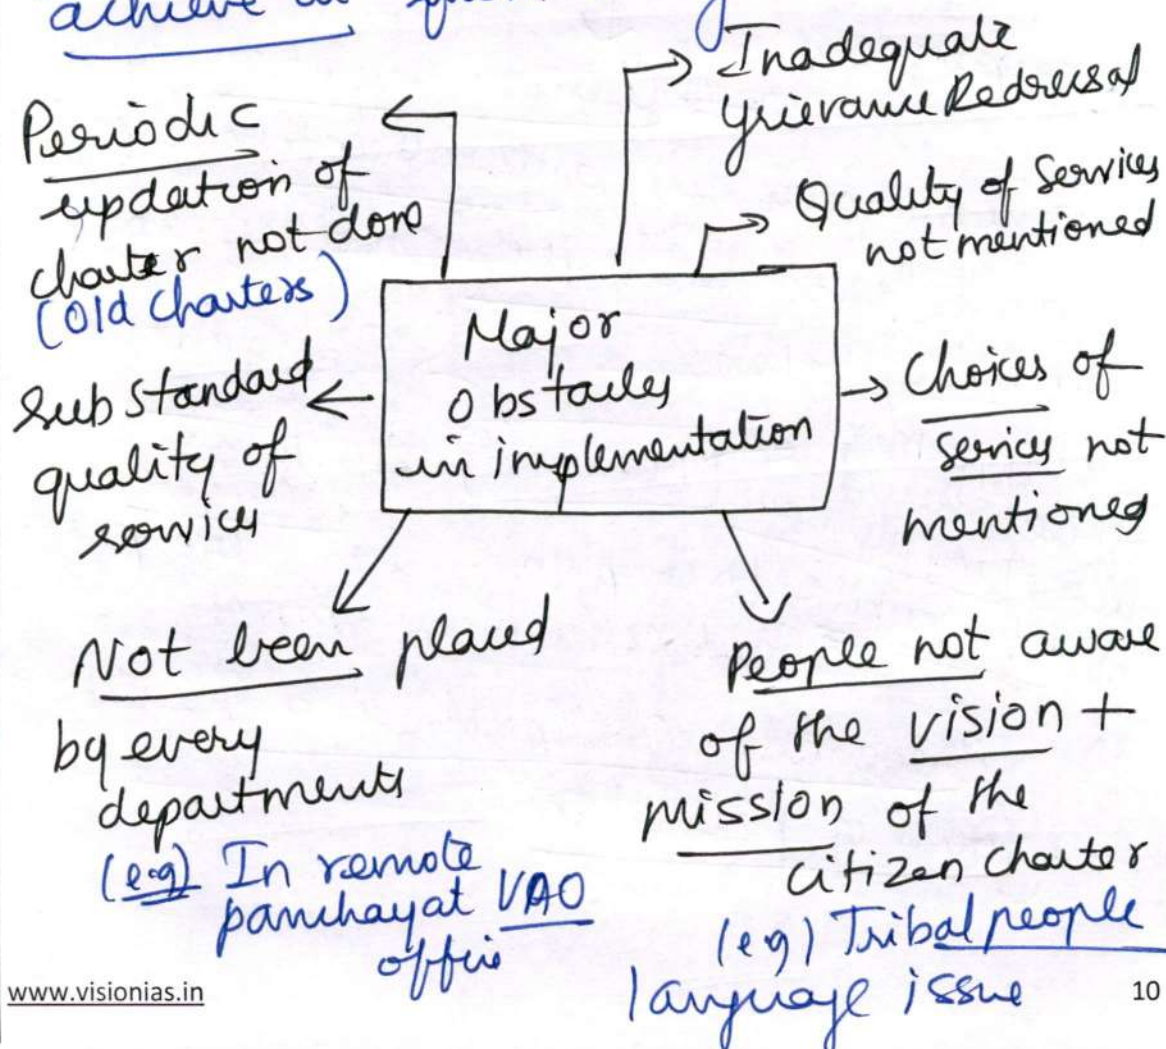 achieve
Inadequate
Grievance Redressal
Periodic
updation of
charter not done
(Old Charters)
Quality of Services
not mentioned
Major
Obstacles
in implementation
Substandard
quality of
services
Choices of
services not
mentioned
Not been placed
by every
departments
(e.g) In remote
panchayat VAO
office
People not aware
of the vision +
mission of the
citizen charter
(eg) Tribal people
language issue
www.visionias.in
10